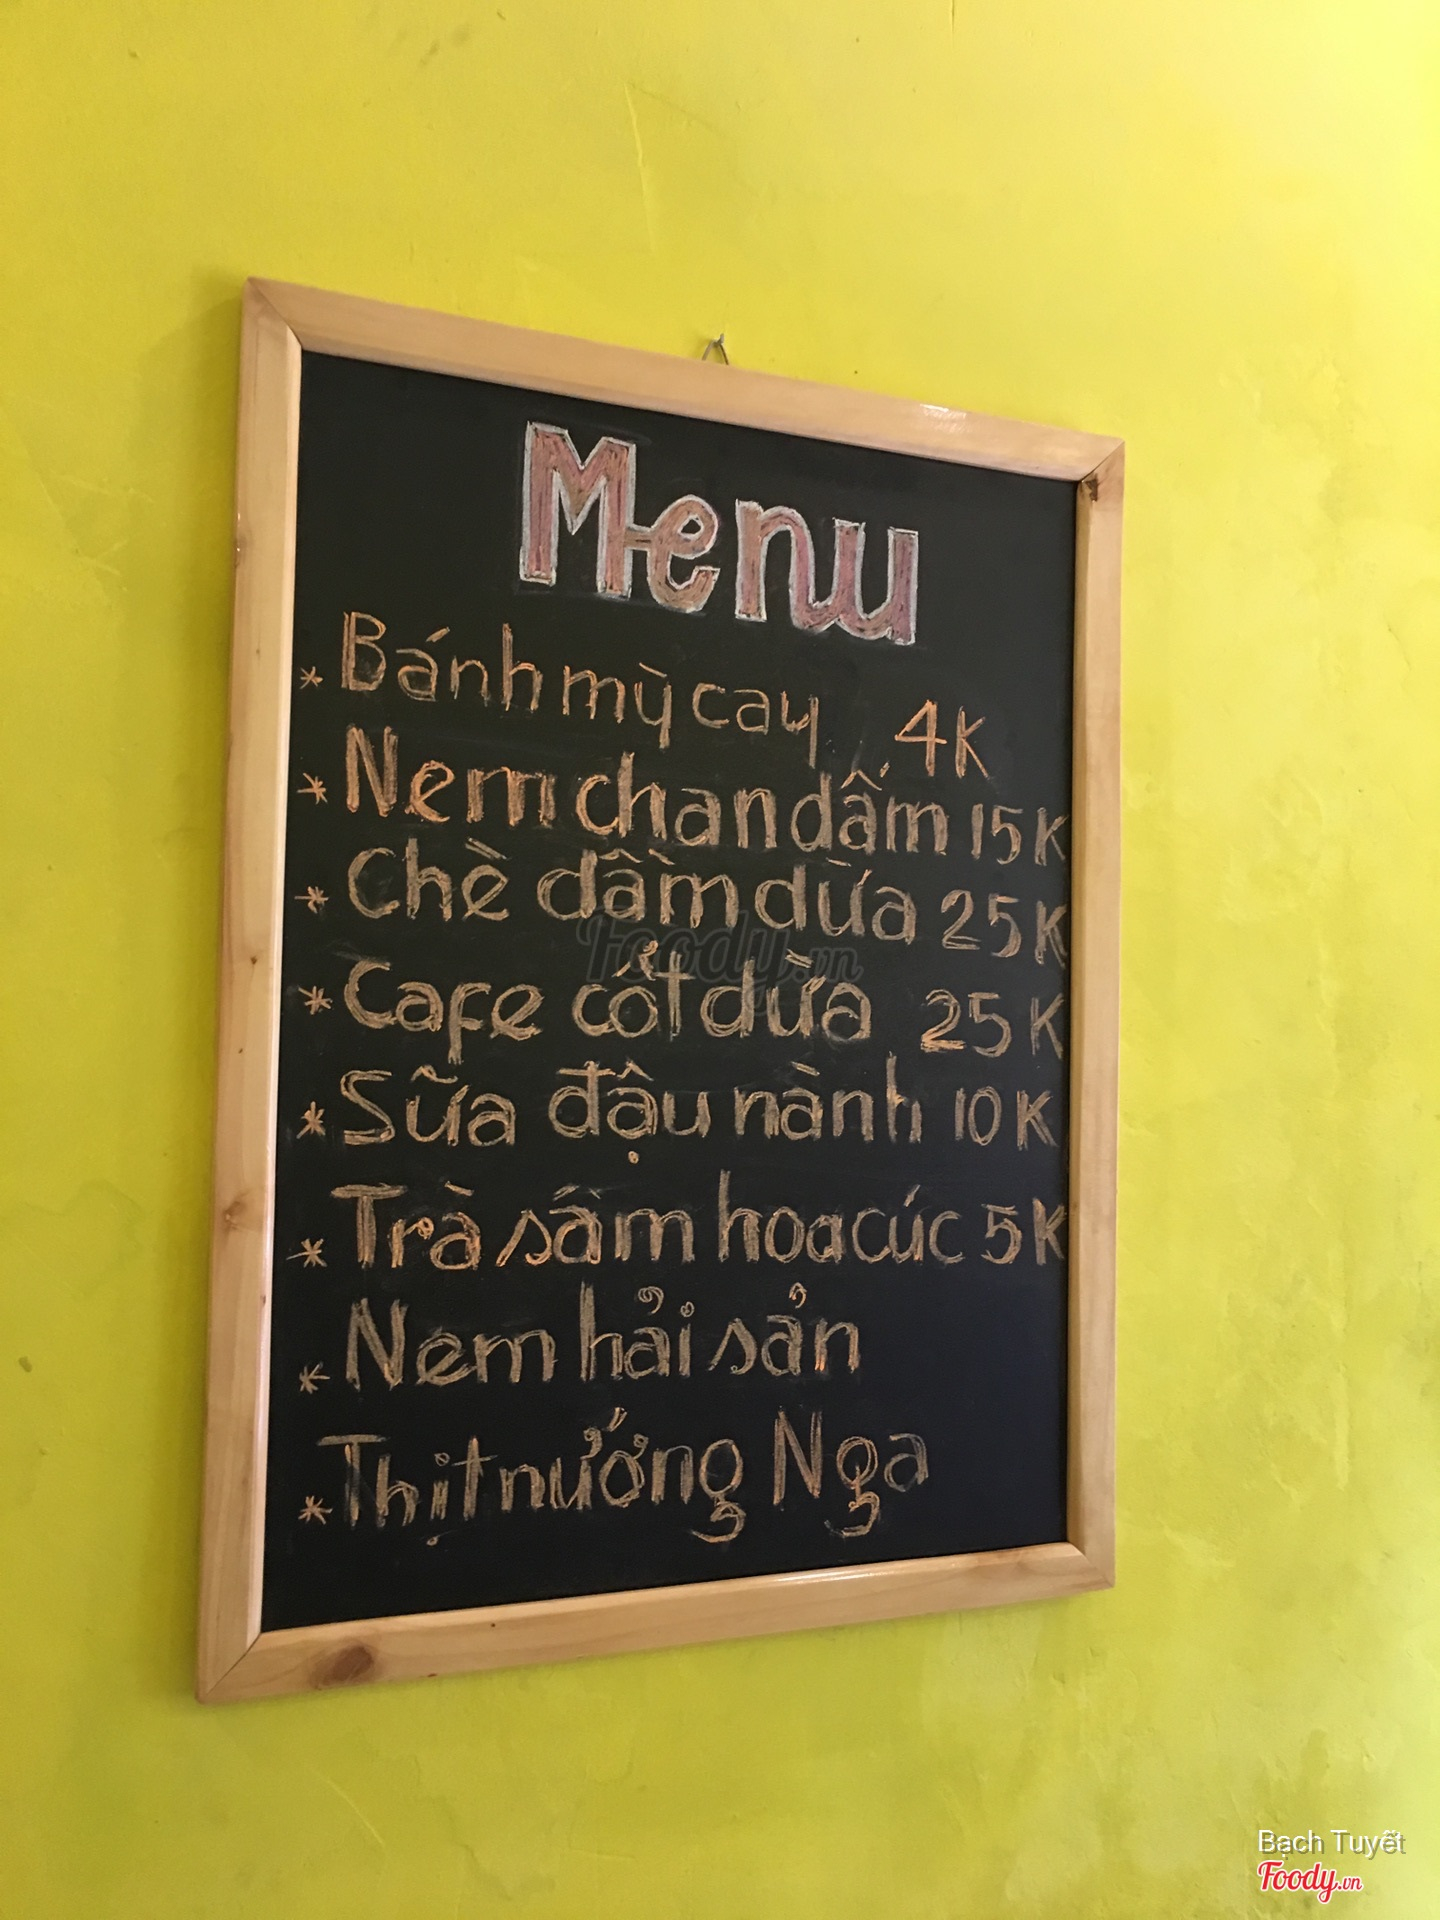 Menu
* Bánh mỳ cay 4K
* Nem chan dấm 15K
* Chè dầm dừa 25K
* Cafe cốt dừa 25K
* Sữa đậu nành 10K
* Trà sâm hoa cúc 5K
* Nem hải sản
* Thịt nướng Nga
Foody.vn
Bạch Tuyết
Foody.vn